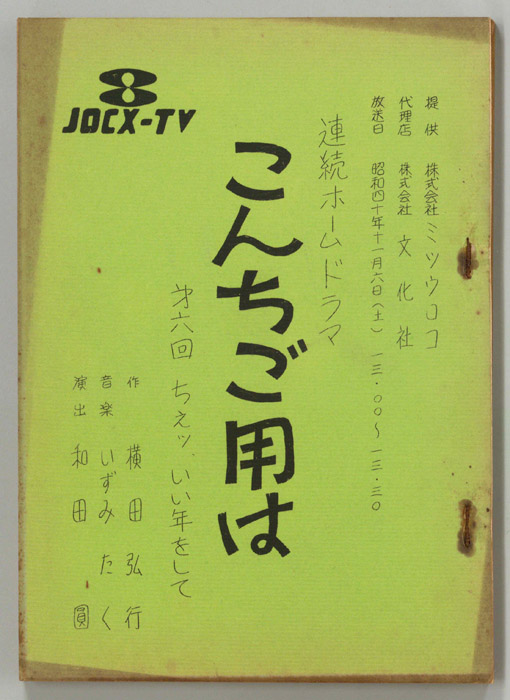 JOCX-TV
提供 株式会社 ミツウロコ
代理店 株式会社 文化社
放送日 昭和四十年十一月六日(土) 一三・〇〇〜一三・三〇
連続ホームドラマ
こんちご用は
㐧六回 ちぇッ、いい年をして
作 横田弘行
音楽 いずみたく
演出 和田圓